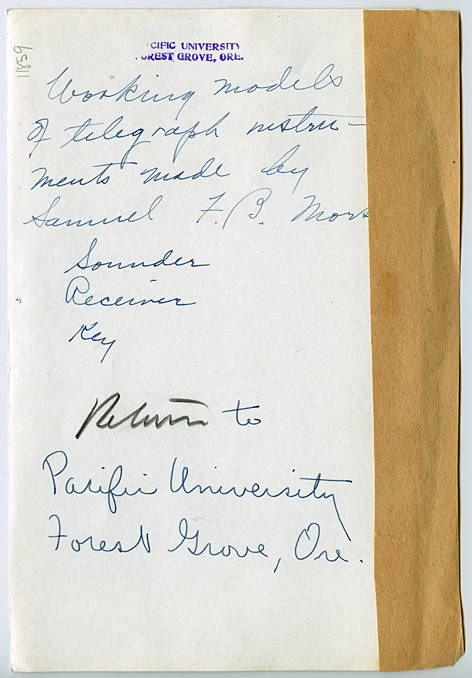 11859
CIFIC UNIVERSITY
OREST GROVE, ORE.
Working models
of telegraph instru-
ments made by
Samuel F. B. Mors
Sounder
Receiver
Key
Return to
Pacific University
Forest Grove, Ore.